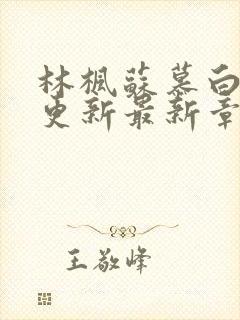 林楓蘇慕白
更新最新章
王敬峰